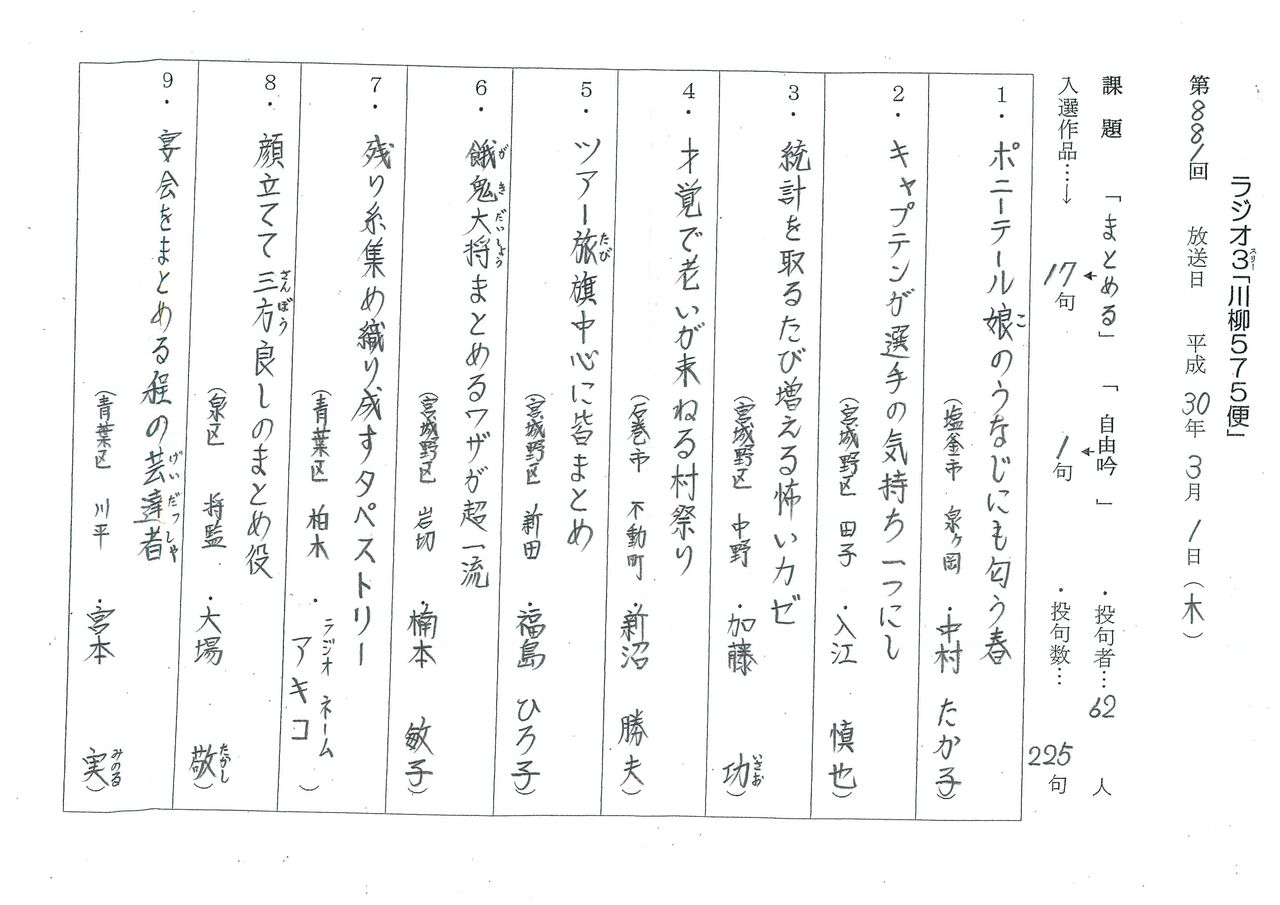 ラジオ3「川柳575便」
第881回 放送日 平成30年3月1日(木)
課題 「まとめる」 「自由吟」 ・投句者…62人
入選作品…→ 17句 1句 ・投句数…225句
1. ポニーテール娘のうなじにも匂う春
(塩釜市 泉ヶ岡 ・中村 たか子)
2. キャプテンが選手の気持ち一つにし
(宮城野区 田子 ・入江 慎也)
3. 統計を取るたび増える怖いカゼ
(宮城野区 中野 ・加藤 功)
4. 才覚で老いが束ねる村祭り
(石巻市 不動町 ・新沼 勝夫)
5. ツアー旅旗中心に皆まとめ
(宮城野区 新田 ・福島 ひろ子)
6. 餓鬼大将まとめるワザが超一流
(宮城野区 岩切 ・楠本 敏子)
7. 残り糸集め織り成すタペストリー
(青葉区 柏木 ・ラジオネーム アキコ)
8. 顔立てて三方良しのまとめ役
(泉区 将監 ・大場 敬)
9. 宴会をまとめる程の芸達者
(青葉区 川平 ・宮本 実)